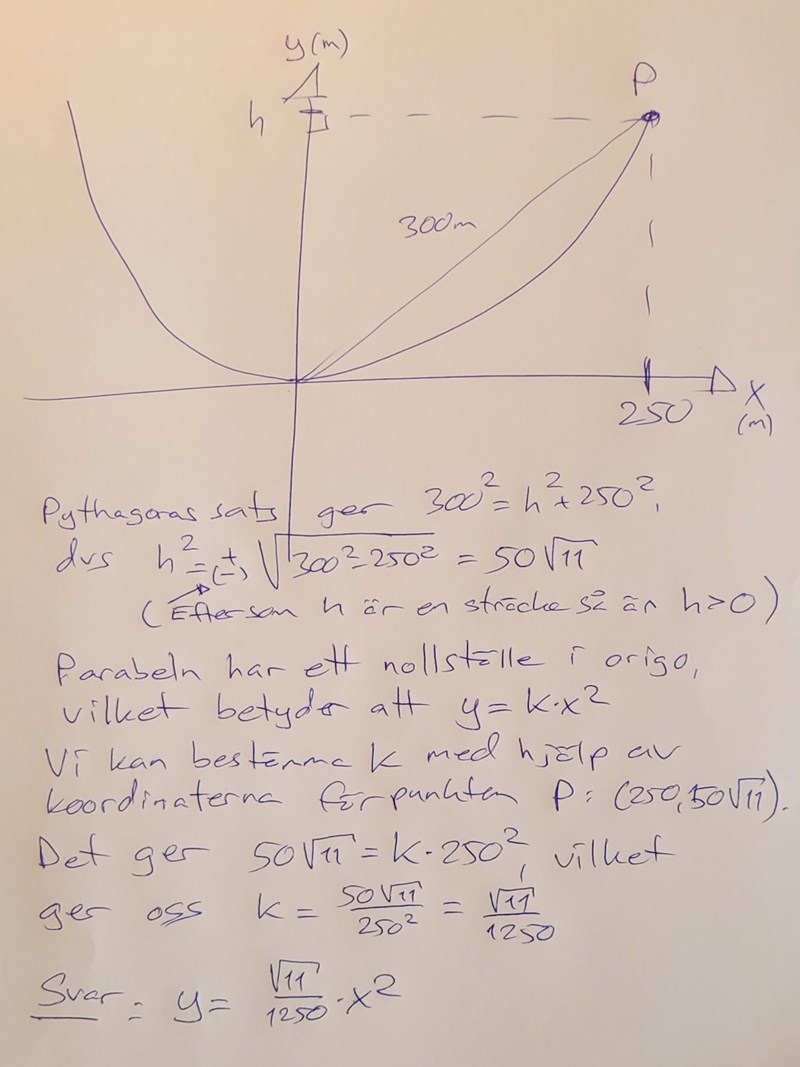 y(m)
P
h
300m
250
x
(m)
Pythagoras sats ger 300² = h² + 250²,
dvs h² = (±) √(300² - 250²) = 50√11
(Eftersom h är en sträcka så är h > 0)
Parabeln har ett nollställe i origo,
vilket betyder att y = k·x²
Vi kan bestämma k med hjälp av
koordinaterna för punkten P: (250, 50√11).
Det ger 50√11 = k·250², vilket
ger oss k = 50√11/250² = √11/1250
Svar: y = √11/1250 · x²